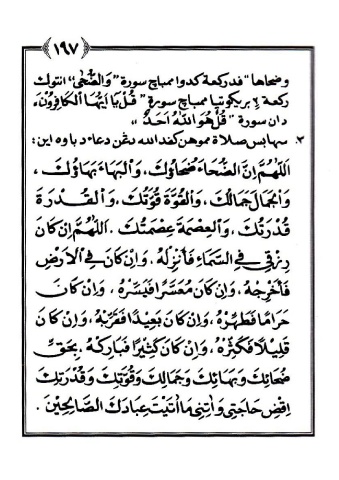 ١٩٧
وضحاها" فدركعة كدوا ممباچ سورة "والضّحى" انتوك
ركعة ٢ بريكوتيا ممباچ سورة "قُلْ يَا اَيُّهَا الْكَافِرُوْنَ،
دان سورة "قُلْ هُوَ اللهُ اَحَدٌ"
٢. سهابس صلاة مموهن كفد الله دغن دعاء دباوه اين:
اَللّٰهُمَّ اِنَّ الضُّحَاءَ ضُحَاؤُكَ، وَالْبَهَاءَ بَهَاؤُكَ،
وَالْجَمَالَ جَمَالُكَ، وَالْقُوَّةَ قُوَّتُكَ، وَالْقُدْرَةَ
قُدْرَتُكَ، وَالْعِصْمَةَ عِصْمَتُكَ. اَللّٰهُمَّ اِنْ كَانَ
رِزْقِي فِي السَّمَاءِ فَأَنْزِلْهُ، وَاِنْ كَانَ فِي الْاَرْضِ
فَأَخْرِجْهُ، وَاِنْ كَانَ مُعَسَّرًا فَيَسِّرْهُ، وَاِنْ كَانَ
حَرَامًا فَطَهِّرْهُ، وَاِنْ كَانَ بَعِيْدًا فَقَرِّبْهُ، وَاِنْ كَانَ
قَلِيْلًا فَكَثِّرْهُ، وَاِنْ كَانَ كَثِيْرًا فَبَارِكْهُ، بِحَقِّ
ضُحَائِكَ وَبَهَائِكَ وَجَمَالِكَ وَقُوَّتِكَ وَقُدْرَتِكَ
اِقْضِ حَاجَتِي وَاٰتِنِي مَا اٰتَيْتَ عِبَادَكَ الصَّالِحِيْنَ.